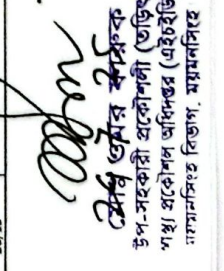 মোঃ ওমর ফারুক
উপ-সহকারী প্রকৌশলী (তড়িৎ
স্বাস্থ্য প্রকৌশল অধিদপ্তর (এইচইডি
ময়মনসিংহ বিভাগ, ময়মনসিংহ